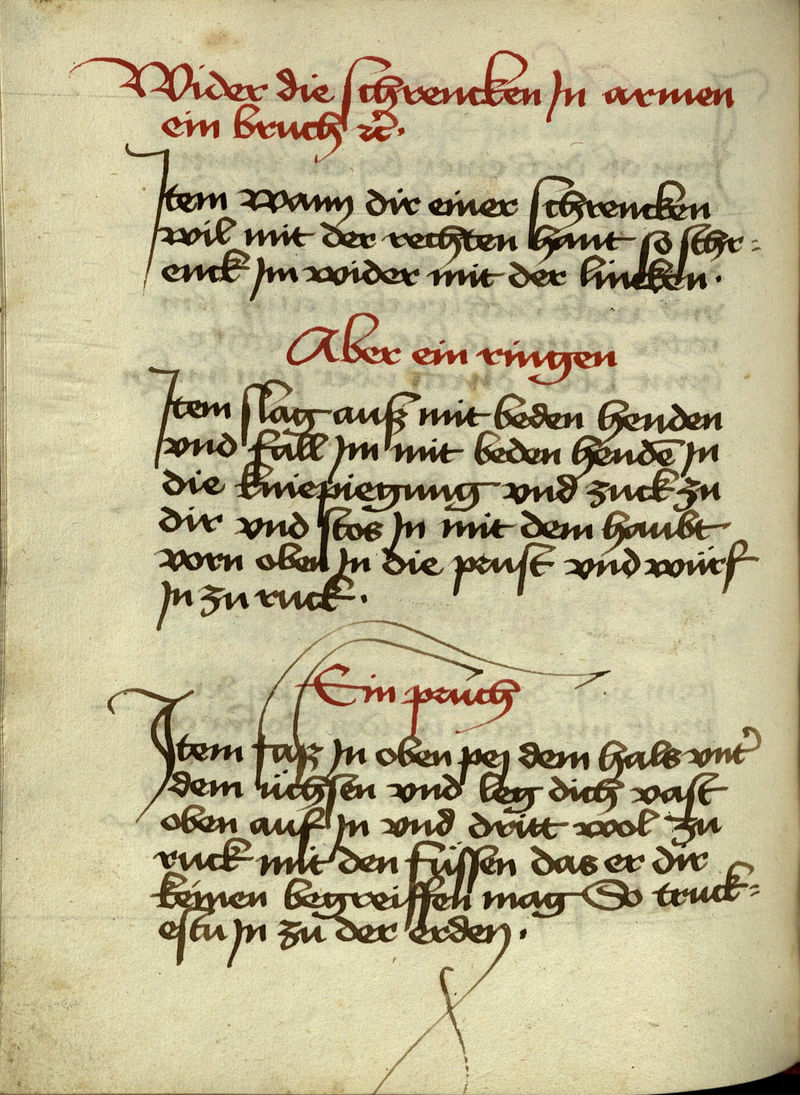 Wider die schrencken Jn armen
ein bruch ꝛc̃.
Jtem wann dir einer schrencken
wil mit der rechten hant so schr=
enck Jm wider mit der lincken.
Aber ein ringen
Jtem slag auß mit beden henden
vnd fall Jm mit beden hendē Jn
die kniepiegung vnd zuck zu
dir vnd stos Jn mit dem haubt
vorn oben Jn die prust vnd würf
Jn zu ruck.
Ein prüch
Jtem faß Jn oben pej dem hals vnt᷑
dem üchsen vnd leg dich vast
oben auf Jn vnd dritt wol zu
ruck mit den füssen das er dir
keinen begreiffen mag So truck=
estu Jn zu der erden.